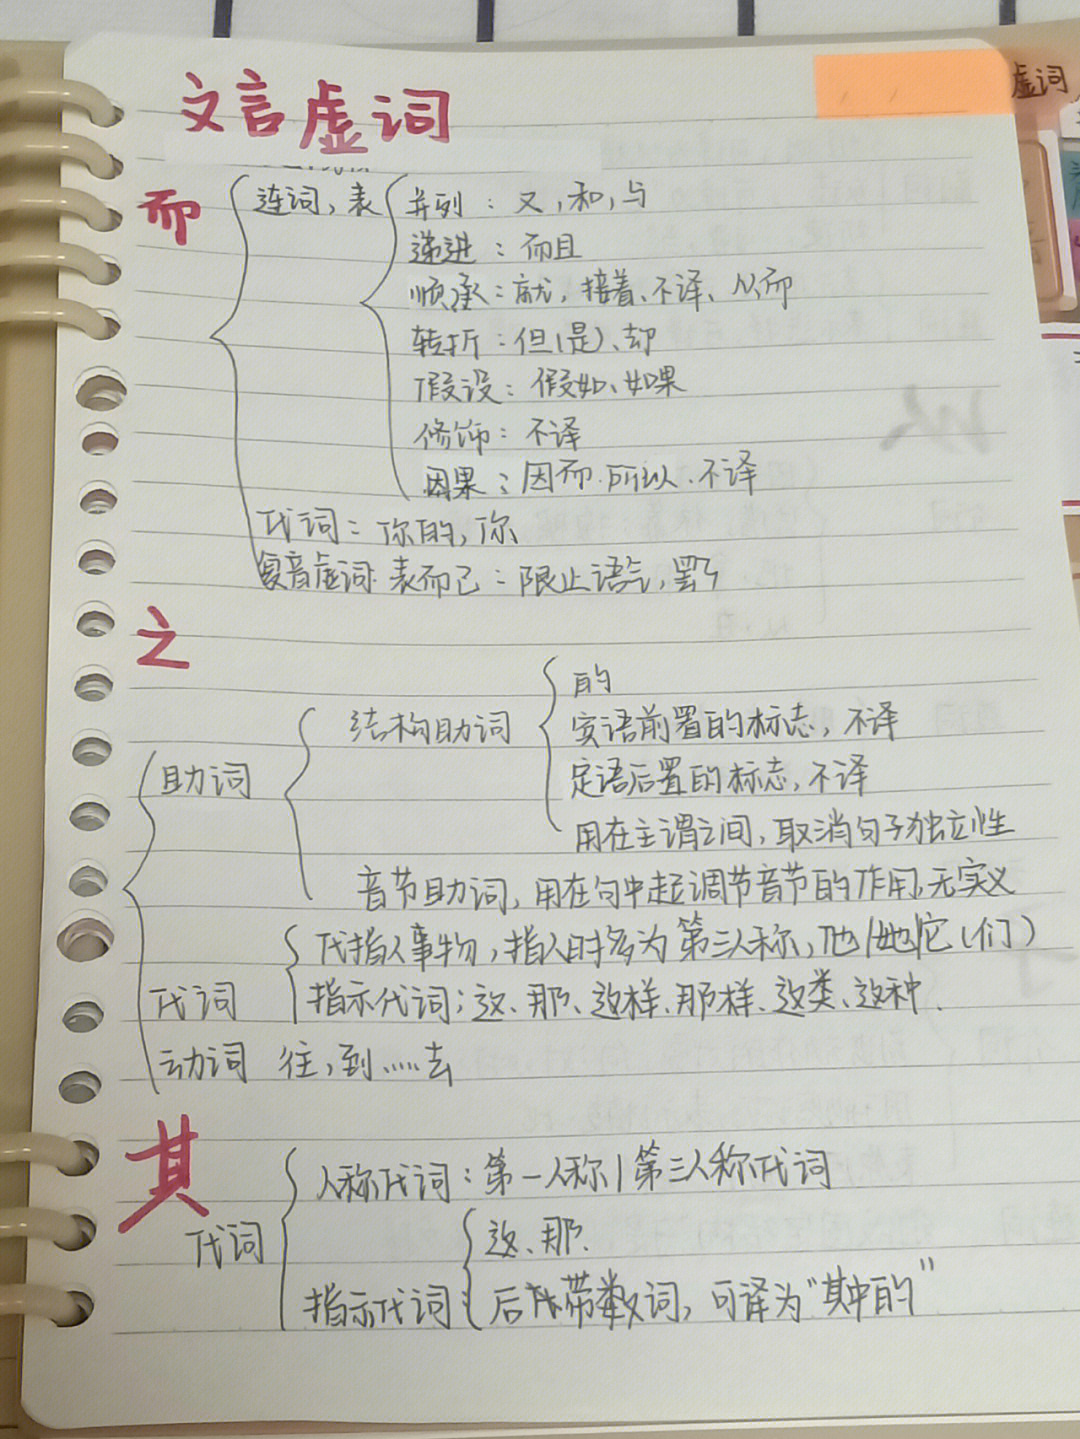 文言虚词
虚词
而 连词，表 并列：又，和，与
递进：而且
顺承：就，接着、不译、从而
转折：但(是)、却
假设：假如、如果
修饰：不译
因果：因而、所以、不译
代词：你的，你
复音虚词 表而已：限止语气，罢了
之
助词 结构助词 的
宾语前置的标志，不译
定语后置的标志，不译
用在主谓之间，取消句子独立性
音节助词，用在句中起调节音节的作用，无实义
代词 代指人事物，指人时多为第三人称，他/她/它(们)
指示代词：这、那、这样、那样、这类、这种.
动词 往，到……去
其
代词 人称代词：第一人称/第三人称代词
指示代词： 这、那.
后或带数词，可译为"其中的"